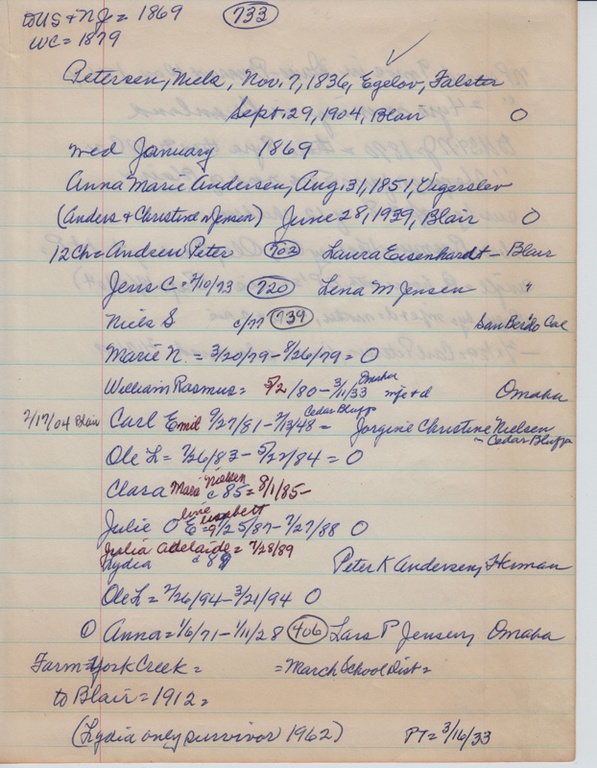 to US & NJ = 1869 733
WC = 1879
Petersen, Niels, Nov. 7, 1836, Egelov, Falster
Sept. 29, 1904, Blair O
wed January 1869
Anna Marie Andersen, Aug. 31, 1851, Vigerslev
(Anders & Christine Jensen) June 28, 1939, Blair O
12 Ch = Andrew Peter 702 Laura Eisenhardt - Blair
Jens C = 7/10/73 720 Lena M Jensen "
Niels S c/77 739 San Berdo Cal
Marie N = 3/20/79 - 8/26/79 = O
William Rasmus = 5/2/80 - 3/11/33 Omaha mfe+d Omaha
2/17/04 Blair Carl Emil 9/27/81 - 7/13/48 = Cedar Bluffs Jorginie Christine Nielsen
- Cedar Bluffs
Ole L = 7/26/83 - 5/27/84 = O
Clara Mara Nielsen c 85 = 8/1/85 -
Julie O E = 9/25/87 - 7/27/88 O
Julia Adelaide = 7/28/89
Lydia c 89 Peter K Andersen, Herman
Ole L = 2/26/94 - 3/21/94 O
O Anna = 1/6/71 - 1/11/28 406 Lars P Jensen, Omaha
Farm = York Creek = = March School Dist =
to Blair = 1912 =
(Lydia only survivor 1962) PT = 3/16/33